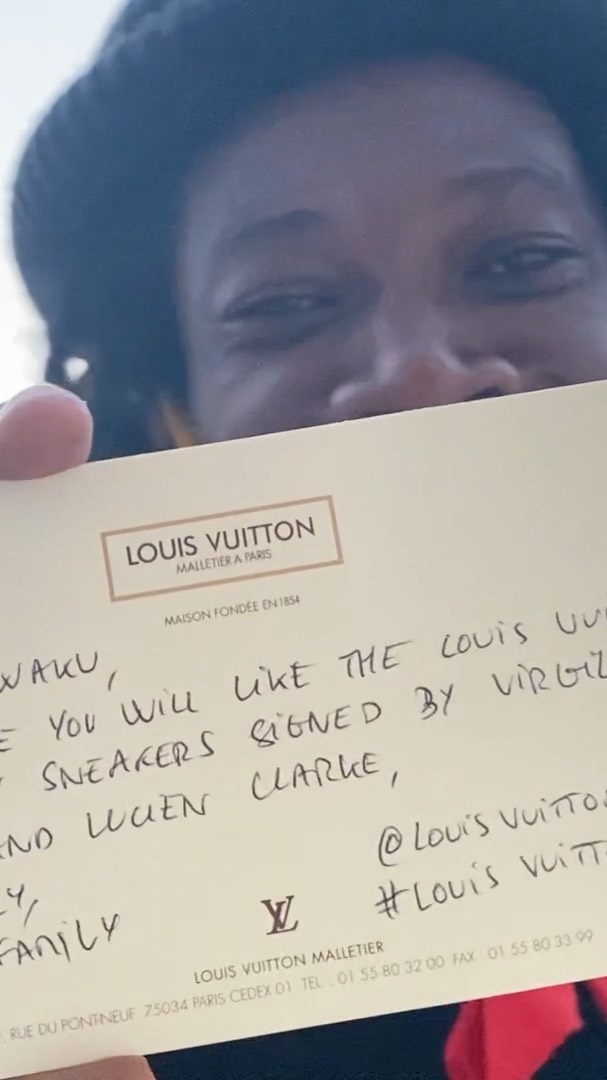 LOUIS VUITTON
MALLETIER A PARIS
MAISON FONDÉE EN 1854
WAKU,
YOU WILL LIKE THE LOUIS
SNEAKERS SIGNED BY VIRGIL
AND LUCIEN CLARKE,
@LOUIS VUITTON
#LOUIS VUITT
FAMILY
LV
LOUIS VUITTON MALLETIER
RUE DU PONT-NEUF 75034 PARIS CEDEX 01 TEL : 01 55 80 32 00 FAX : 01 55 80 33 99